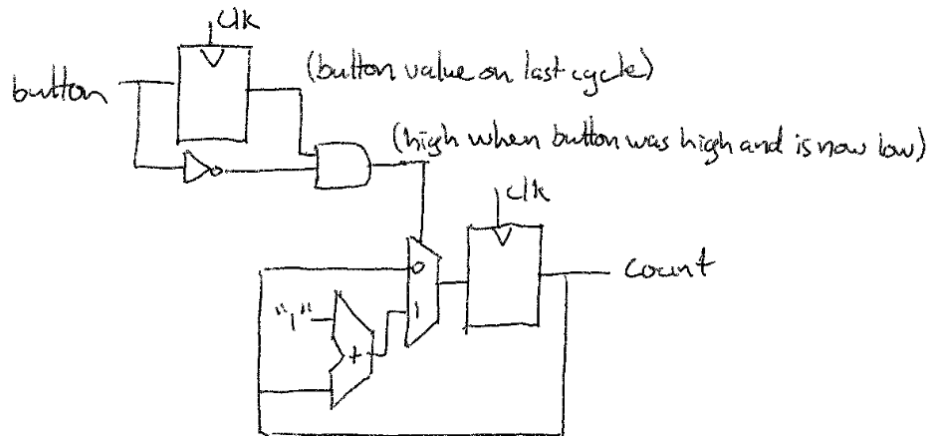 clk
button
(button value on last cycle)
(high when button was high and is now low)
clk
0
count
"1"
1
+